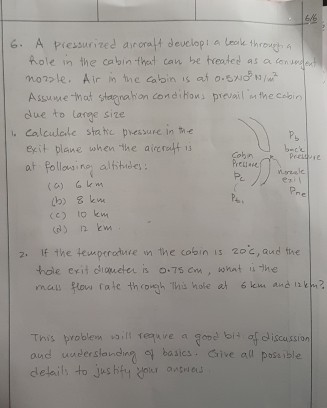 6/6
6. A pressurized aircraft develops a leak through a
hole in the cabin that can be treated as a convergent
nozzle. Air in the cabin is at 0.8×10⁵ N/m²
Assume that stagnation conditions prevail in the cabin
due to large size
1. Calculate static pressure in the
exit plane when the aircraft is
at following altitudes:
(a) 6 km
(b) 8 km
(c) 10 km
(d) 12 km
Cabin
Pressure
Pc
Pb
back
Pressure
nozzle
exit
Pne
2. If the temperature in the cabin is 20°C, and the
hole exit diameter is 0.75 cm, what is the
mass flow rate through this hole at 6 km and 12 km?
This problem will require a good bit of discussion
and understanding of basics. Give all possible
details to justify your answers